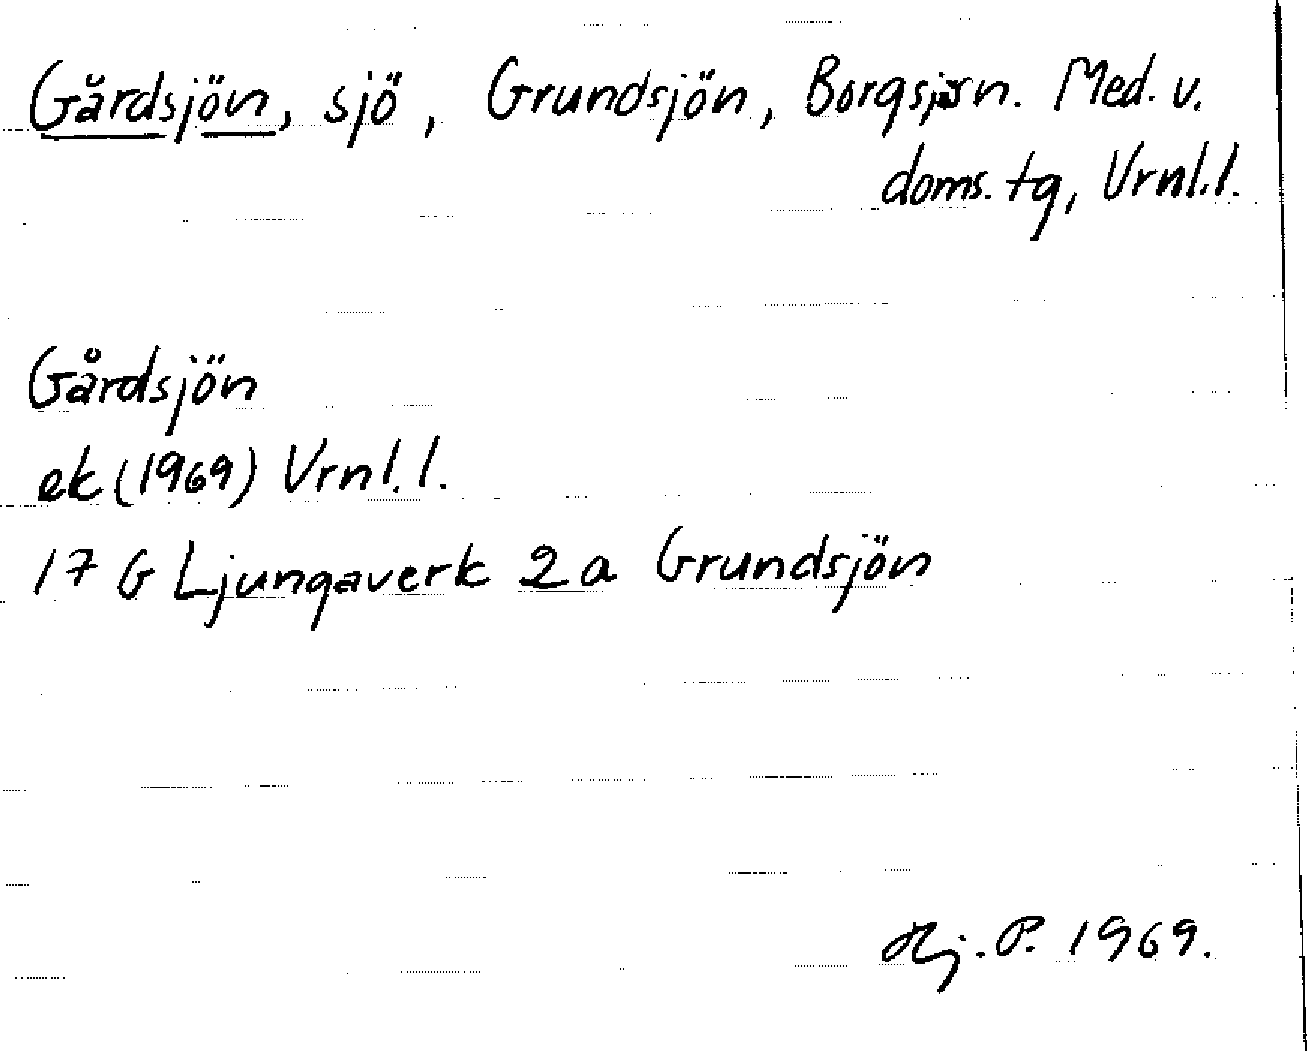 Gårdsjön, sjö, Grundsjön, Borgsjösn. Med. v.
doms. tg, Vrnl.l.
Gårdsjön
ek (1969) Vrnl.l.
17 G Ljungaverk 2 a Grundsjön
Hj. P. 1969.